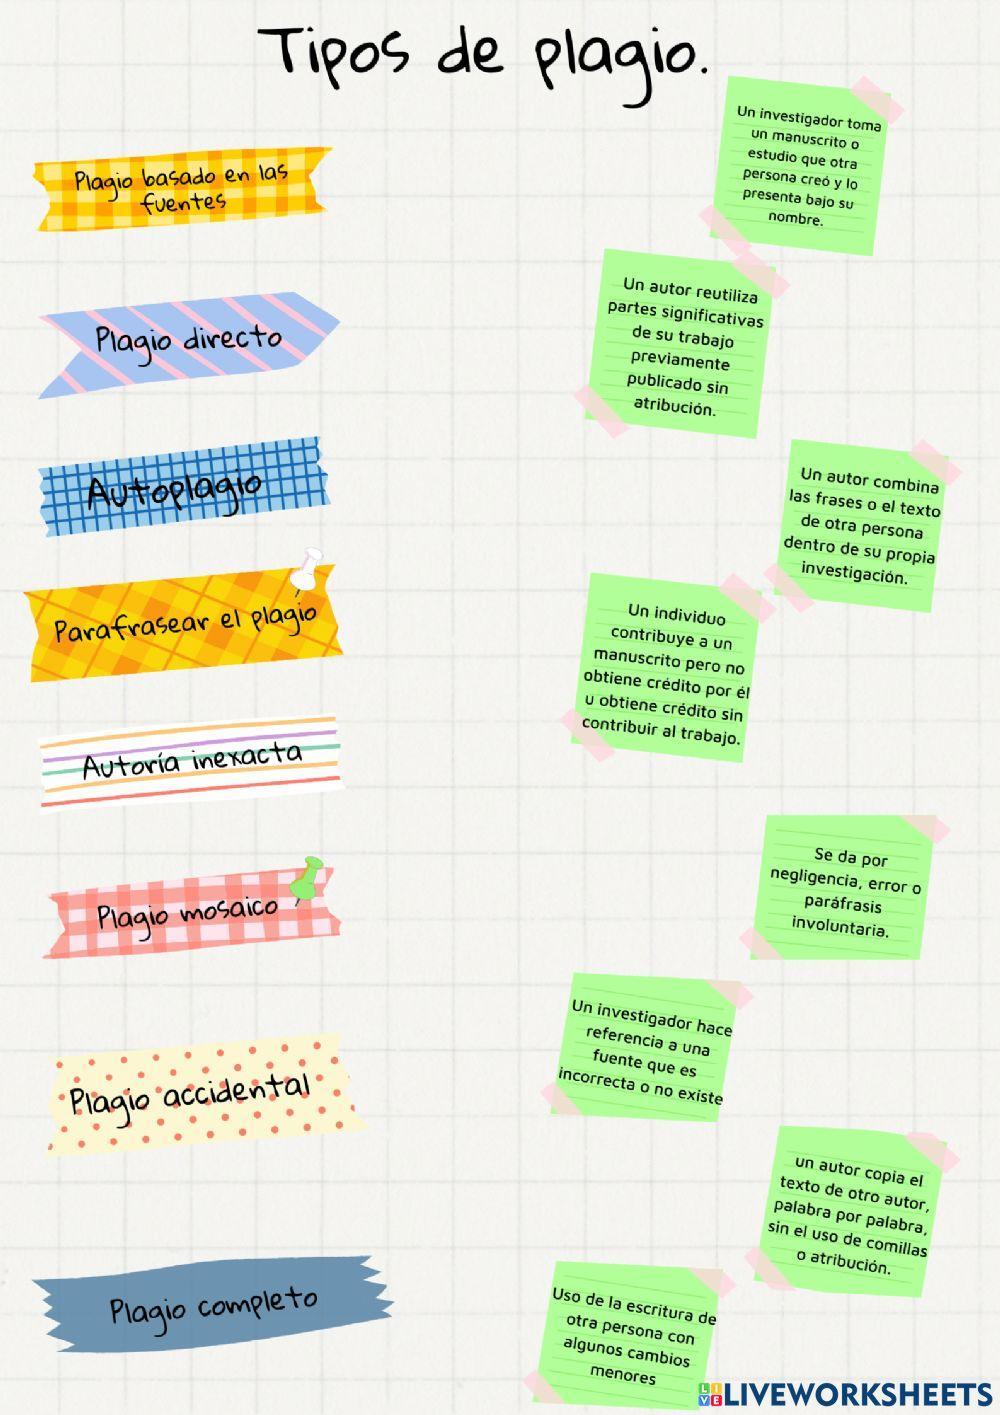 Tipos de plagio.
Plagio basado en las
fuentes
Plagio directo
Autoplagio
Parafrasear el plagio
Autoría inexacta
Plagio mosaico
Plagio accidental
Plagio completo
Un investigador toma
un manuscrito o
estudio que otra
persona creó y lo
presenta bajo su
nombre.
Un autor reutiliza
partes significativas
de su trabajo
previamente
publicado sin
atribución.
Un autor combina
las frases o el texto
de otra persona
dentro de su propia
investigación.
Un individuo
contribuye a un
manuscrito pero no
obtiene crédito por él
u obtiene crédito sin
contribuir al trabajo.
Se da por
negligencia, error o
paráfrasis
involuntaria.
Un investigador hace
referencia a una
fuente que es
incorrecta o no existe
un autor copia el
texto de otro autor,
palabra por palabra,
sin el uso de comillas
o atribución.
Uso de la escritura de
otra persona con
algunos cambios
menores
LIVE LIVEWORKSHEETS